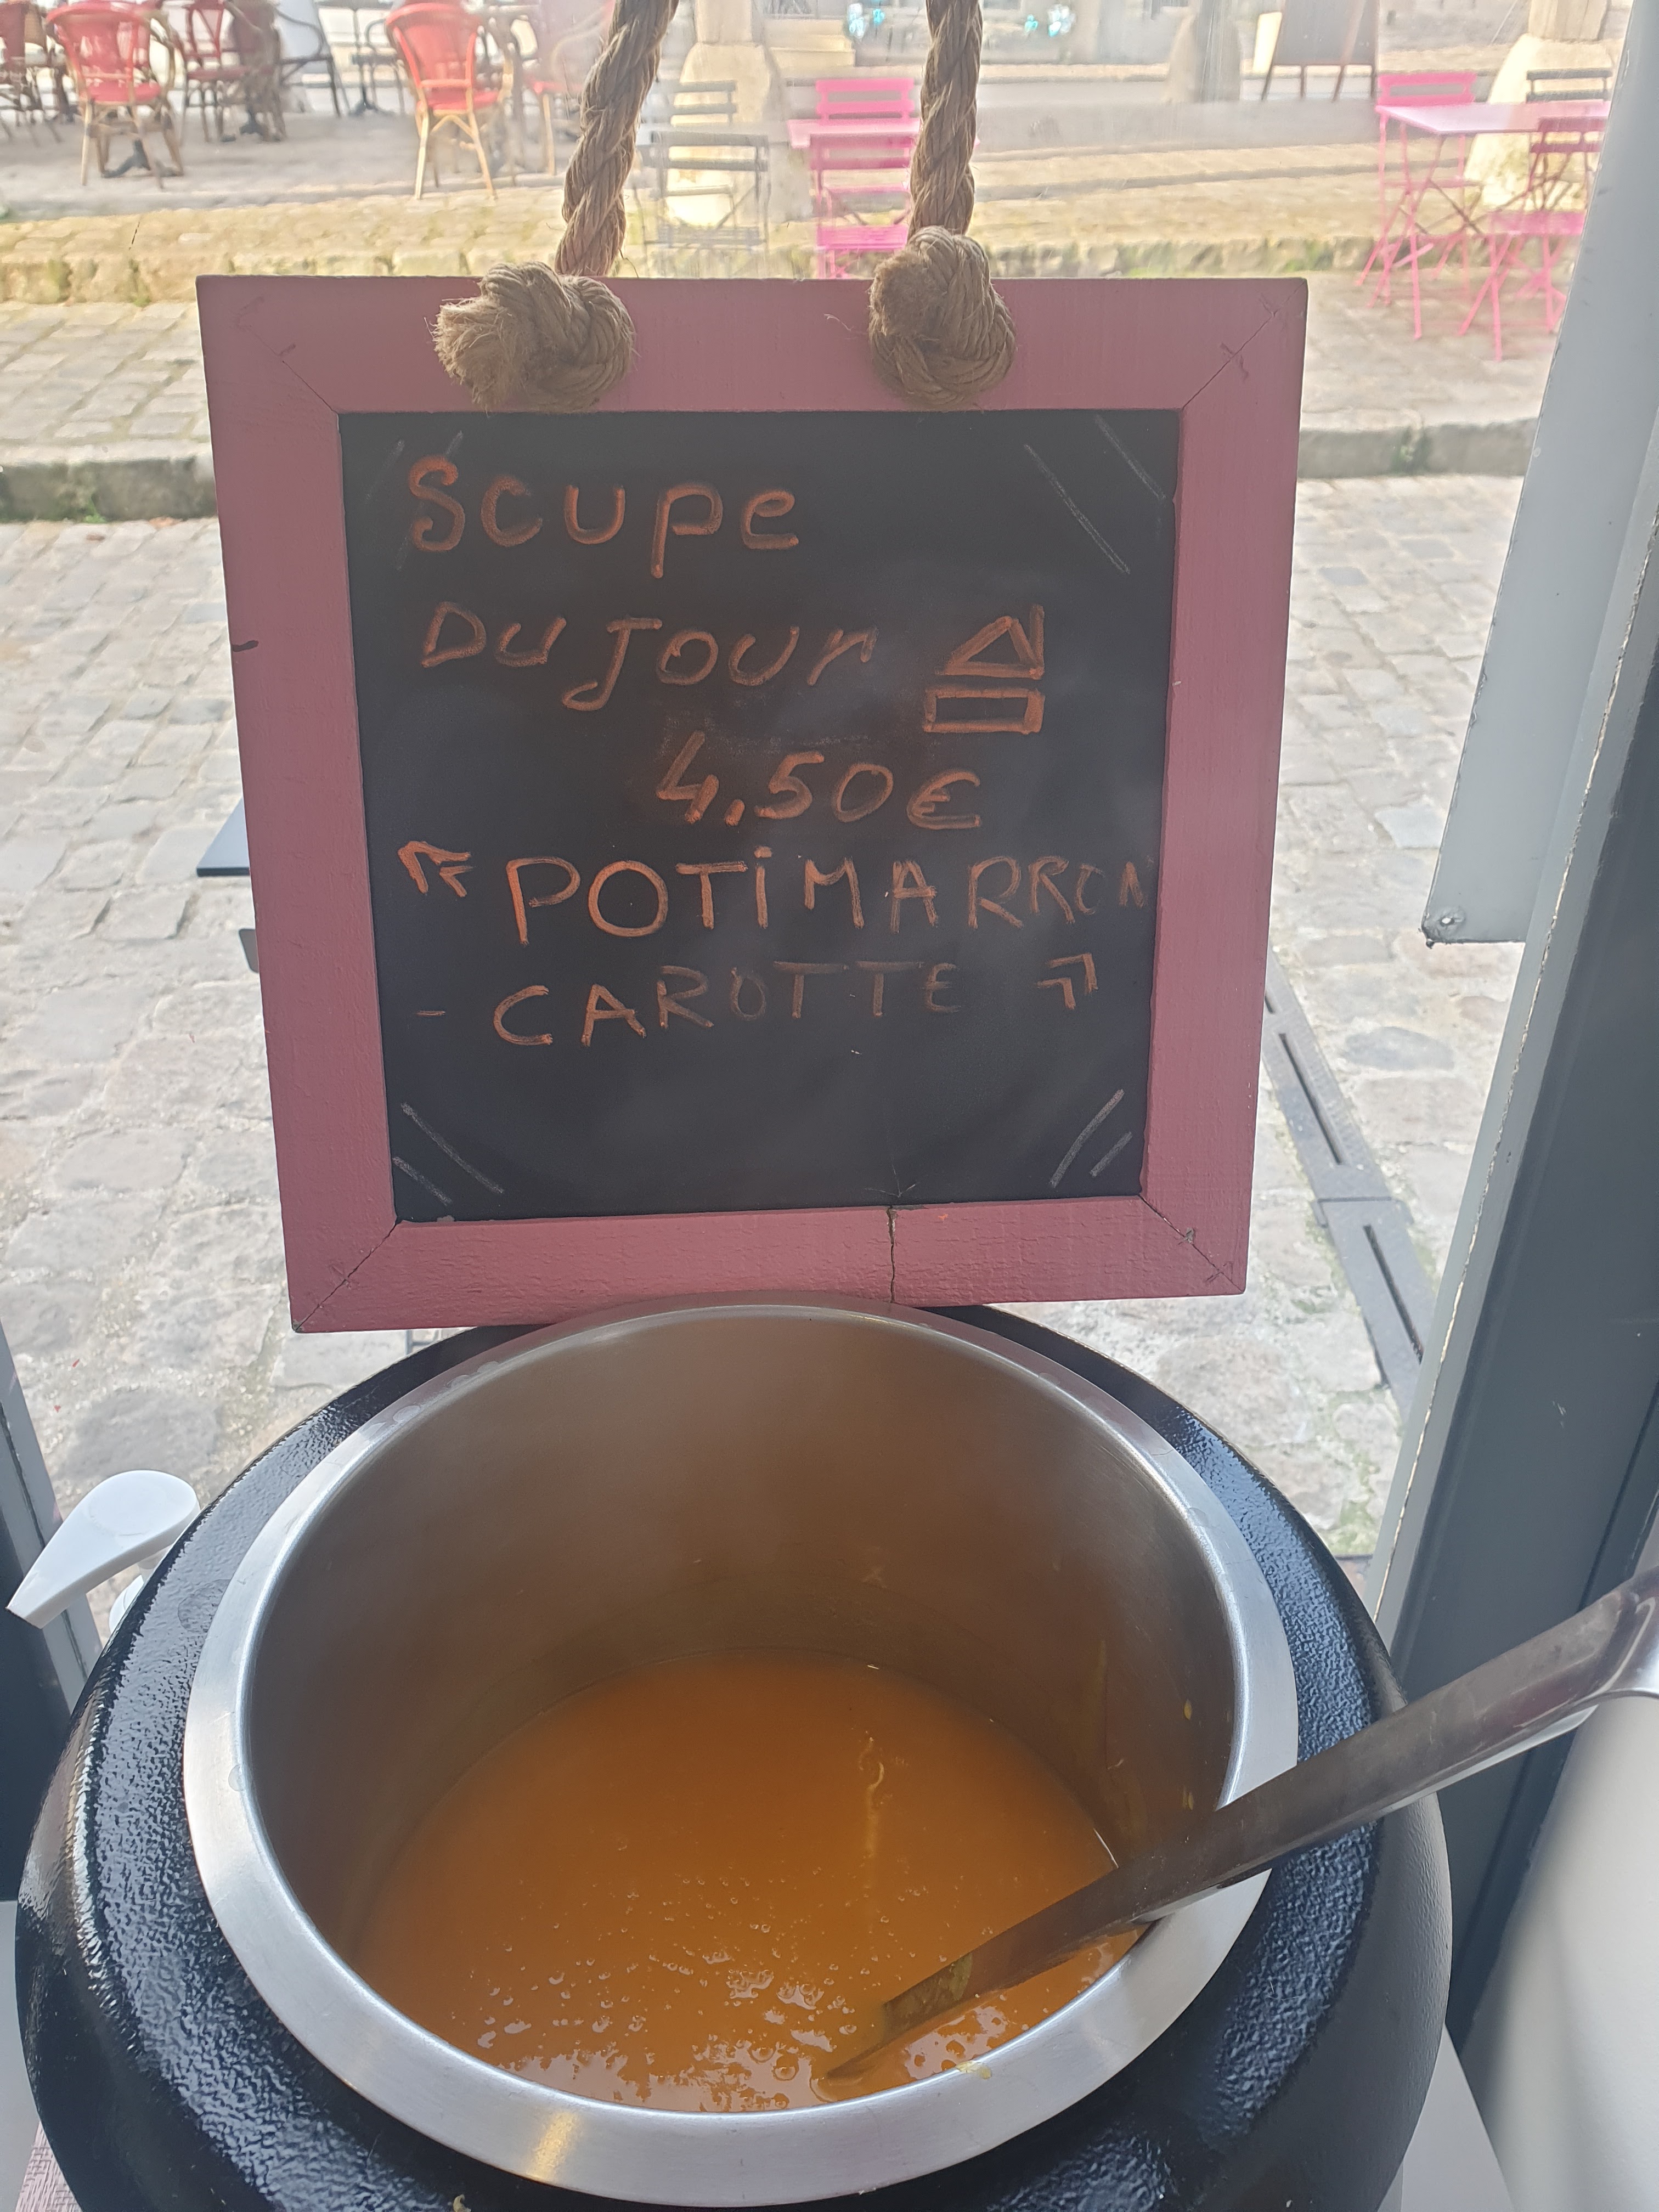 Soupe
DU JOUR
4,50€
"POTiMARRON
- CAROTTE "